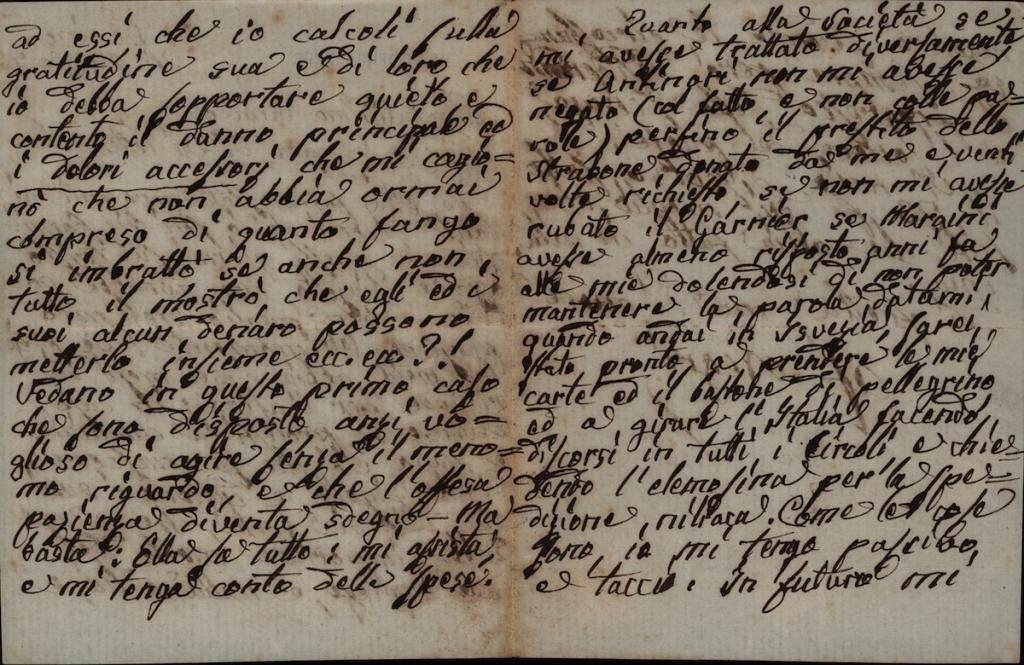 ad essi che io calcoli sulla
gratitudine sua e di loro che
io debba sopportare quieto e
contento il danno principale ed
i dolori accessorj che mi cagio=
nò che non abbia ormai
compreso di quanto fango
si imbrattò se anche non
tutto il mostrò, che egli ed i
suoi alcun denaro possono
metterlo insieme ecc. ecc.?!
Vedano in questo primo caso
che sono disposto anzi vo=
glioso di agire senza il meno=
mo riguardo, e che l'offesa
pazienza diventa sdegno – Ma
basta: Ella sa tutto; mi assista,
e mi tenga conto delle spese.
Quanto alla società se
mi avesse trattato diversamente
se Antinori non mi avesse
negato (col fatto, e non colle pa=
role) perfino il prestito dello
Strabone donato da me e venti
volte richiesto se non mi avesse
rubato il Garnier se Margini
avesse almeno risposto anni fa
alle mie dolendosi di non poter
mantenere la parola datami
quando andai in Isvezia, sarei
stato pronto a prendere le mie
carte ed il bastone di pellegrino
ed a girare l'Italia facendo
discorsi in tutti i Circoli e chie=
dendo l'elemosina per la spe=
dizione niliaca. Come le cose
sono, io mi tengo passivo,
e taccio. In futuro mi